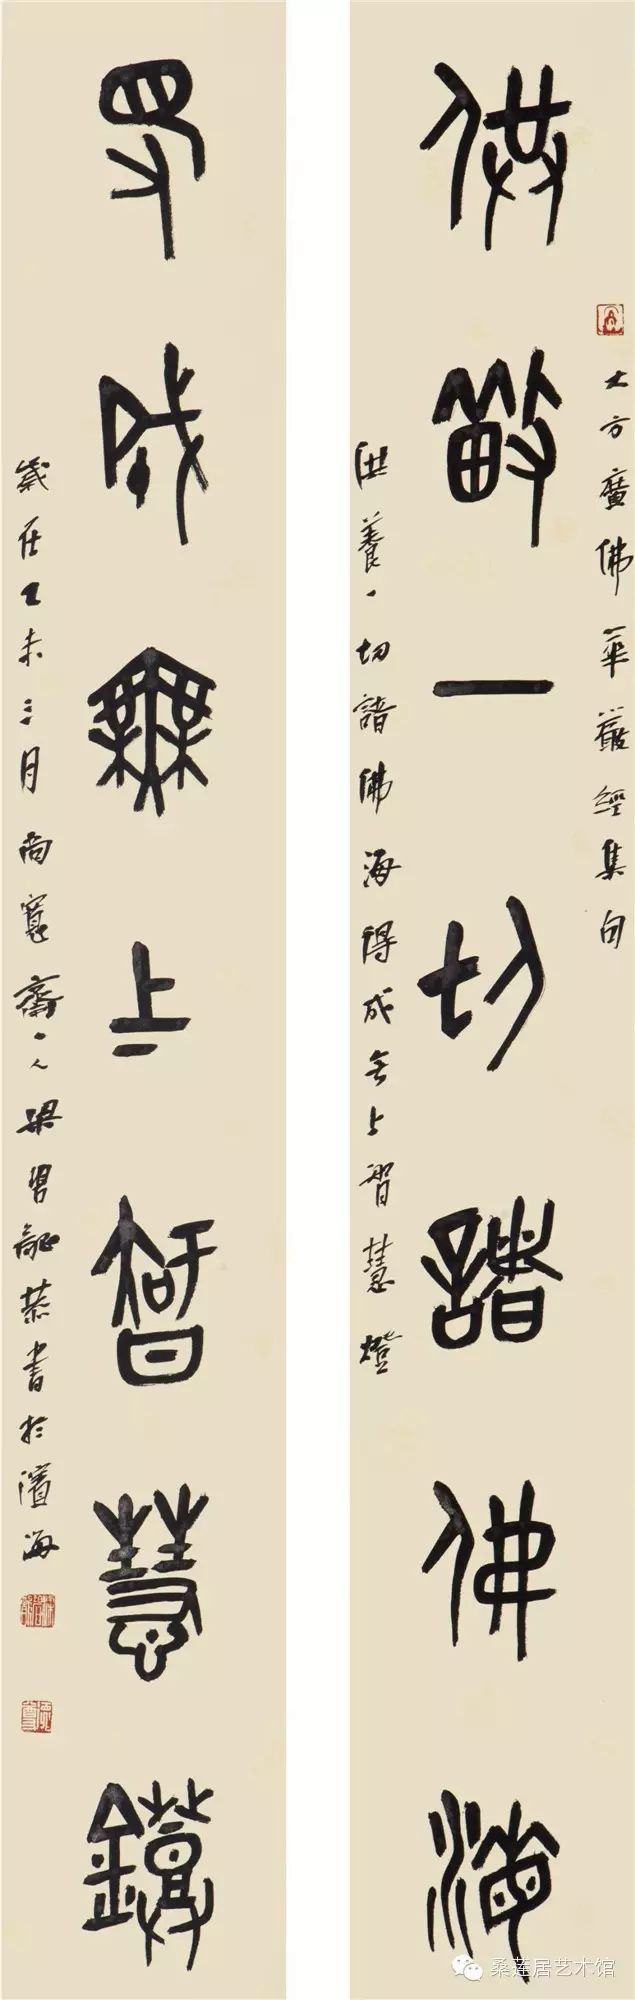 大方廣佛華嚴經集句
供養一切諸佛海
供養一切諸佛海得成无上智慧燈
得成無上智慧鐙
歲在乙未三月齋人梁恭書於濱海
桑莲居艺术馆